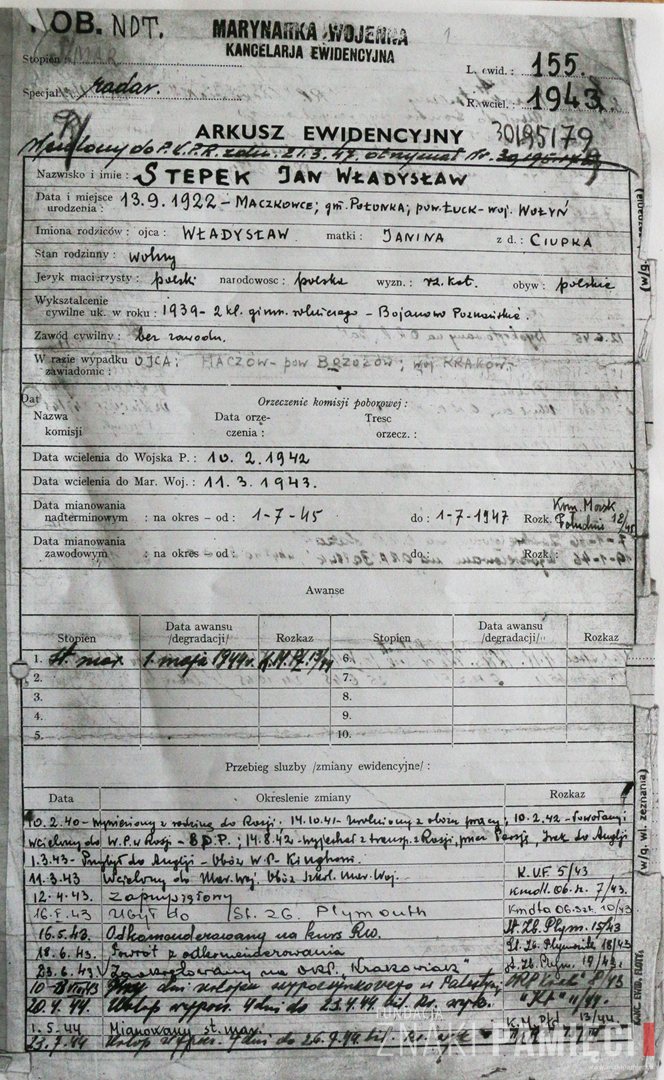 OB. NDT.
MARYNARKA WOJENNA
KANCELARJA EWIDENCYJNA
1
Stopien:
Specjal: radar.
L. ewid.: 155.
R. wciel.: 1943
ARKUSZ EWIDENCYJNY
30195179
do P.K.P.R. 21.3.47. otrzymał Nr. 30195179
Nazwisko i imie: STEPEK JAN WŁADYSŁAW
Data i miejsce urodzenia: 13.9.1922 – MACZKOWCE; gm. POŁONKA; pow. ŁUCK – woj. WOŁYŃ
Imiona rodziców: ojca: WŁADYSŁAW matki: JANINA z d.: CIUPKA
Stan rodzinny: wolny
Jezyk macierzysty: polski narodowosc: polska wyzn.: rz. kat. obyw: polskie
Wykształcenie cywilne uk. w roku: 1939 – 2 kl. gimn. rolniczego – Bojanowo Poznańskie
Zawód cywilny: bez zawodu.
W razie wypadku zawiadomic: OJCA: HACZÓW – pow BRZOZÓW; woj KRAKÓW.
Dat
Orzeczenie komisji poborowej:
Nazwa komisji
Data orzeczenia:
Tresc orzecz.:
Data wcielenia do Wojska P.: 10. 2. 1942
Data wcielenia do Mar. Woj.: 11. 3. 1943.
Data mianowania nadterminowym: na okres – od: 1-7-45 do: 1-7-1947 Rozk. Kom. Morsk Południe 12/45
Data mianowania zawodowym: na okres – od: do: Rozk.:
Awanse
Stopien
Data awansu /degradacji/
Rozkaz
Stopien
Data awansu /degradacji/
Rozkaz
1. st. mar. 1 maja 1944 r. 6.
2. 7.
3. 8.
4. 9.
5. 10.
Przebieg sluzby /zmiany ewidencyjne/:
Data
Okreslenie zmiany
Rozkaz
10.2.40 – wywieziony z rodziną do Rosji. 14.10.41 – zwolniony z obozu pracy; 10.2.42 – powołany i
wcielony do W.P. w Rosji – 8 D.P.; 14.8.42 – wyjechał z transp. z Rosji, przez Persję, Irak do Anglji
1.3.43 – Przybył do Anglji – Obóz W.P.
11.3.43 Wcielony do Mar. Woj. Obóz Szkol. Mar. Woj. K.U.F. 5/43
12.4.43. Zaprzysiężony Kmdt. Ob. sz. 7/43.
16.5.43 Ubył do St. Zb. Plymouth Kmdta Ob. Szk. 10/43
16.5.43. Odkomenderowany na kurs St. Zb. Plym. 15/43
18.6.43. Powrót z odkomenderowania St. Zb. Plymouth 18/43
23.6.43 Zaokrętowany na okr. "Krakowiak" St. Zb. Plym. 19/43.
dni urlopu wypoczynkowego w Palestynie
20.4.44. Urlop wypocz. 4 dni do 23.4.44
1.5.44 Mianowany st. mar. 13/44.
23.9.44 Urlop wypocz. 4 dni do 26.9.44
/w/g. wl. zeznania/
KANC. EWID. FLOTY.
FUNDACJA
ZNAKI PAMIĘCI